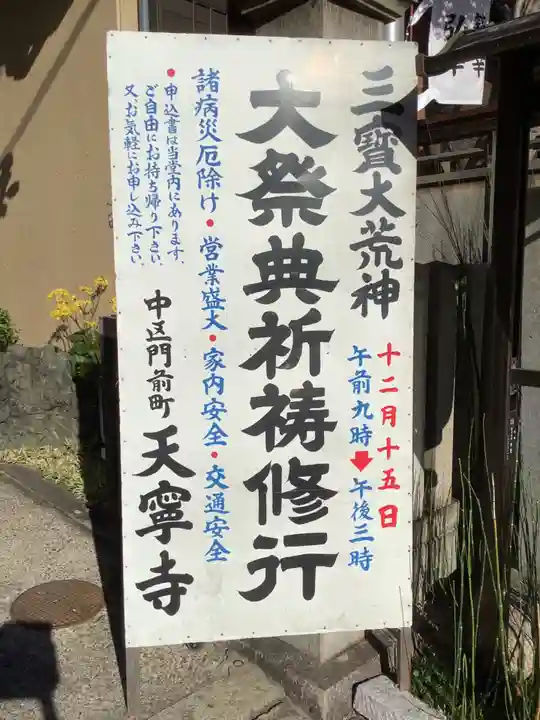 三寶大荒神
十二月十五日
午前九時➡午後三時
大祭典祈祷修行
諸病災厄除け・営業盛大・家内安全・交通安全
・申込書は当堂内にあります、
ご自由にお持ち帰り下さい、
又、お気軽にお申し込み下さい、
中区門前町 天寧寺